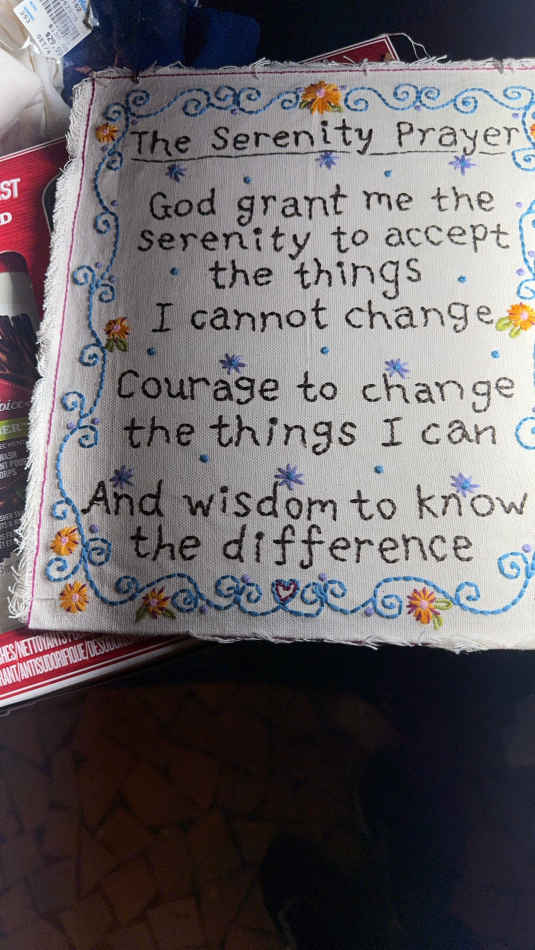 The Serenity Prayer
God grant me the
serenity to accept
the things
I cannot change
Courage to change
the things I can
And wisdom to know
the difference